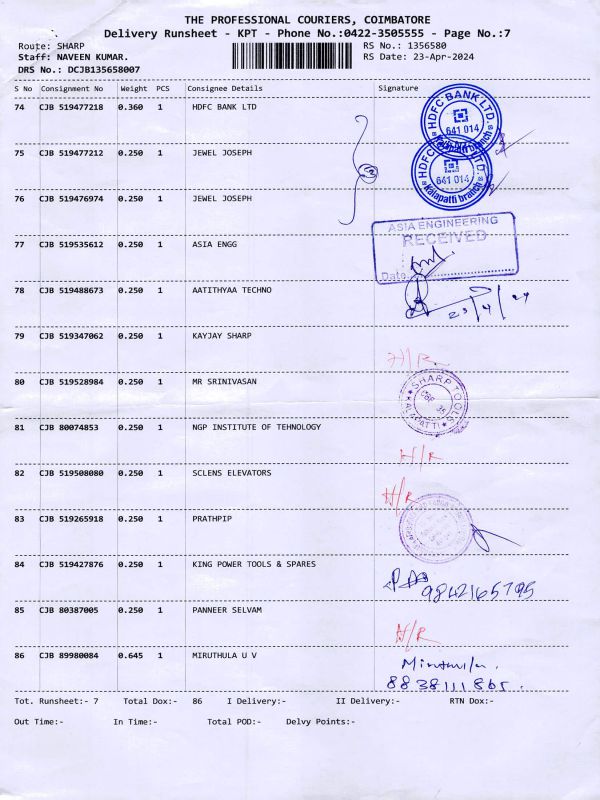 THE PROFESSIONAL COURIERS, COIMBATORE
Delivery Runsheet - KPT - Phone No.:0422-3505555 - Page No.:7
Route: SHARP RS No.: 1356580
Staff: NAVEEN KUMAR. RS Date: 23-Apr-2024
DRS No.: DCJB135658007
S No Consignment No Weight PCS Consignee Details Signature
74 CJB 519477218 0.360 1 HDFC BANK LTD
HDFC BANK LTD.
641 014
Kalapatti branch
75 CJB 519477212 0.250 1 JEWEL JOSEPH
HDFC BANK LTD.
641 014
Kalapatti branch
76 CJB 519476974 0.250 1 JEWEL JOSEPH
77 CJB 519535612 0.250 1 ASIA ENGG
ASIA ENGINEERING
RECEIVED
Date
78 CJB 519488673 0.250 1 AATITHYAA TECHNO
23/4/24
79 CJB 519347062 0.250 1 KAYJAY SHARP
H/R
80 CJB 519528984 0.250 1 MR SRINIVASAN
SHARP TOOLS
KALAPATTI
81 CJB 80074853 0.250 1 NGP INSTITUTE OF TEHNOLOGY
H/R
82 CJB 519508080 0.250 1 SCLENS ELEVATORS
H/R
83 CJB 519265918 0.250 1 PRATHPIP
84 CJB 519427876 0.250 1 KING POWER TOOLS & SPARES
9842165795
85 CJB 80387005 0.250 1 PANNEER SELVAM
H/R
86 CJB 89980084 0.645 1 MIRUTHULA U V
8838111865.
Tot. Runsheet:- 7 Total Dox:- 86 I Delivery:- II Delivery:- RTN Dox:-
Out Time:- In Time:- Total POD:- Delvy Points:-